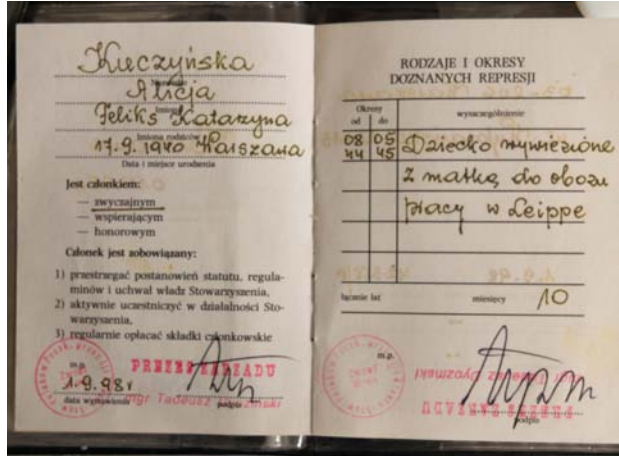 Kuczyńska
Nazwisko
Alicja
Imiona
Feliks Katarzyna
Imiona rodziców
17.9.1940 Warszawa
Data i miejsce urodzenia
Jest członkiem:
— zwyczajnym
— wspierającym
— honorowym
Członek jest zobowiązany:
1) przestrzegać postanowień statutu, regula-
minów i uchwał władz Stowarzyszenia,
2) aktywnie uczestniczyć w działalności Sto-
warzyszenia,
3) regularnie opłacać składki członkowskie
m.p.
PREZES ZARZĄDU
1.9.98r
mgr Tadeusz
data wystawienia
podpis
RODZAJE I OKRESY
DOZNANYCH REPRESJI
Okresy
od do
wyszczególnienie
08 05
44 45
Dziecko wywiezione
z matką do obozu
pracy w Leippe
łącznie lat miesięcy 10
m.p.
mgr Tadeusz
PREZES ZARZĄDU
podpis